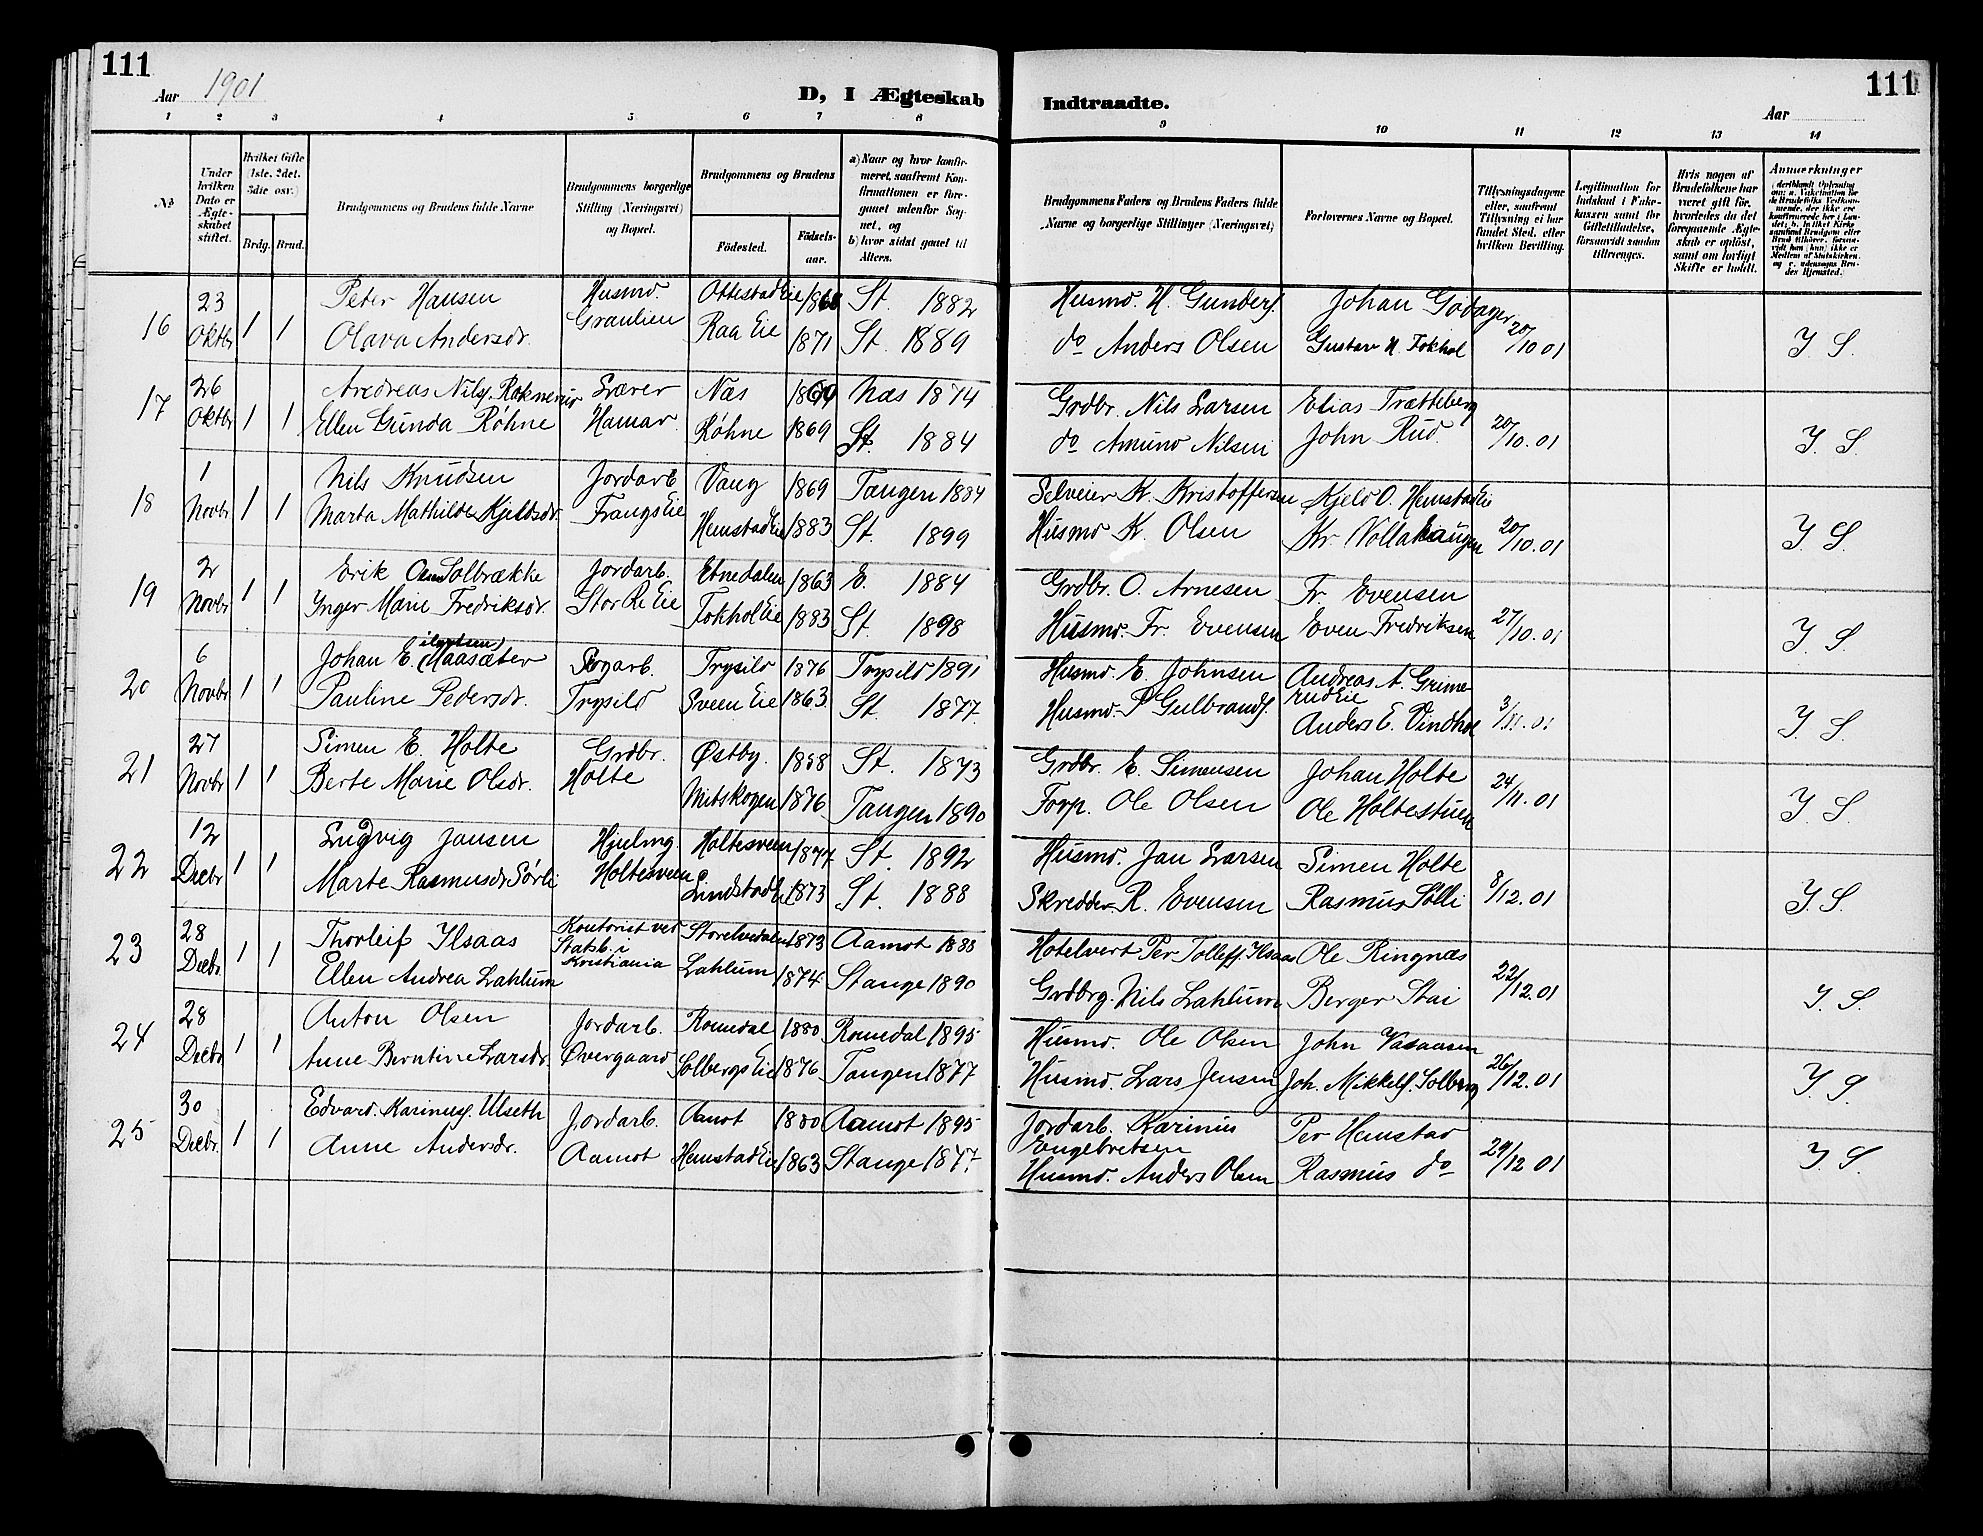 111
Aar 1901
D, I Ægteskab
Indtraadte.
111
Aar
1 2 3 4 5 6 7 8 9 10 11 12 13 14
No
Under hvilken Dato er Ægteskabet stiftet.
Hvilket Gifte 1ste, 2det, 3die osv.)
Brdg. Brud.
Brudgommens og Brudens fulde Navne
Brudgommens borgerlige Stilling (Næringsvei) og Bopæl.
Brudgommens og Brudens
Fødested.
Fødselsaar.
a) Naar og hvor konfirmeret, saafremt Konfirmationen er foregaaet udenfor Sognet, og
b) hvor sidst gaaet til Alters.
Brudgommens Faders og Brudens Faders fulde Navne og borgerlige Stillinger (Næringsvei)
Forlovernes Navne og Bopæl.
Tillysningsdagene eller, saafremt Tillysning ei har fundet Sted, efter hvilken Bevilling.
Legitimation for Indskud i Enkekassen samt for Giftetilladelse, forsaavidt saadan tiltrænges.
Hvis nogen af Brudefolkene har været gift før, hvorledes da det foregaaende Ægteskab er opløst, samt om lovligt Skifte er holdt.
Anmærkninger
16 23 Oktbr 1 1 Peter Hansen Husmd. Graulien Ottestad Eie St. 1882 Husmd. H. Gunders. Johan Godager 20/10 01 I S.
Olava Andersdr. Raa Eie 1871 St. 1889 do Anders Olsen Gustav N. Fokhol
17 26 Oktbr 1 1 Andreas Nils. Roknerud Lærer Hamar Næs Næs 1874 Grdbr. Nils Larsen Elias Trætteberg 20/10.01 I S.
Ellen Gunda Røhne Røhne 1869 St. 1884 do Amund Nilsen John Rud.
18 1 Novbr 1 1 Nils Knudsen Jordarb Frangs Eie Vang 1869 Tangen 1884 Selveier K. Kristoffersen Kjeld O. Hemstad Eie 20/10.01 I. S.
Marta Mathilde Kjeldsdr. Hemstad Eie 1883 St. 1899 Husmd K. Olsen Kr. Vollahaugen
19 2 Novbr 1 1 Erik Olsen Solbrække Jordarb. Stor Re Eie Etnedalen 1863 E. 1884 Grdbr. O. Arnesen Fr. Evensen 27/10.01 I S.
Inger Marie Fredriksdr. Fokhol Eie 1883 St. 1898 Husmd. Fr. Evensen Even Fredriksen
20 6 Novbr 1 1 Johan E. Maasæter Skogarb. Trysild Trysild 1876 Trysild 1891 Husmd. E. Johnsen Andreas A. Grimerud Eie 3/11.01 I. S.
Pauline Pedersdr. Sveen Eie 1863 St. 1877 Husmd. P Gulbrands. Anders E. Vindhol
21 27 Novbr 1 1 Simen E. Holte Grdbr. Holte Østby. 1858 St. 1873 Grdbr. E. Simensen Johan Holte 24/11.01 I S.
Berte Marie Olsdr. Midskogen 1876 Tangen 1890 Forp. Ole Olsen Ole Holtestuen
22 12 Decbr 1 1 Ludvig Jansen Hjulmg. Holtesveen Holtesveen 1877 St. 1892 Husmd. Jan Larsen Simen Holte 8/12.01 I. S.
Marte Rasmusdr Sørli Lindstad Eie 1873 St. 1888 Skredder R. Evensen Rasmus Sølli
23 28 Decbr. 1 1 Thorleif Ilsaas Kontorist ved Statsb. i Kristiania Storelvedalen 1873 Aamot 1888 Hotelvert Per Tolleff. Ilsaas Ole Ringnæs 22/12.01 I S.
Ellen Andrea Lahlum Lahlum 1874 Stange 1890 Grdbrg. Nils Lahlum Berger Stai
24 28 Decbr 1 1 Anton Olsen Jordarb. Øvergaard Romedal 1880 Romedal 1895 Husmd. Ole Olsen John Vasaasen 26/12.01 I. S.
Anne Berntine Larsdr. Solbergs Eie 1876 Tangen 1877 Husmd. Lars Jensen Joh. Mikkels. Solberg
25 30 Decbr. 1 1 Edvard. Karinus. Ulseth Jordarb. Aamot Aamot 1880 Aamot 1895 Jordarb. Karinus Engebretsen Per Hemstad 29/12 01 I S.
Anne Andersdr. Hemstad Eie 1863 Stange 1877 Husmd. Anders Olsen Rasmus do